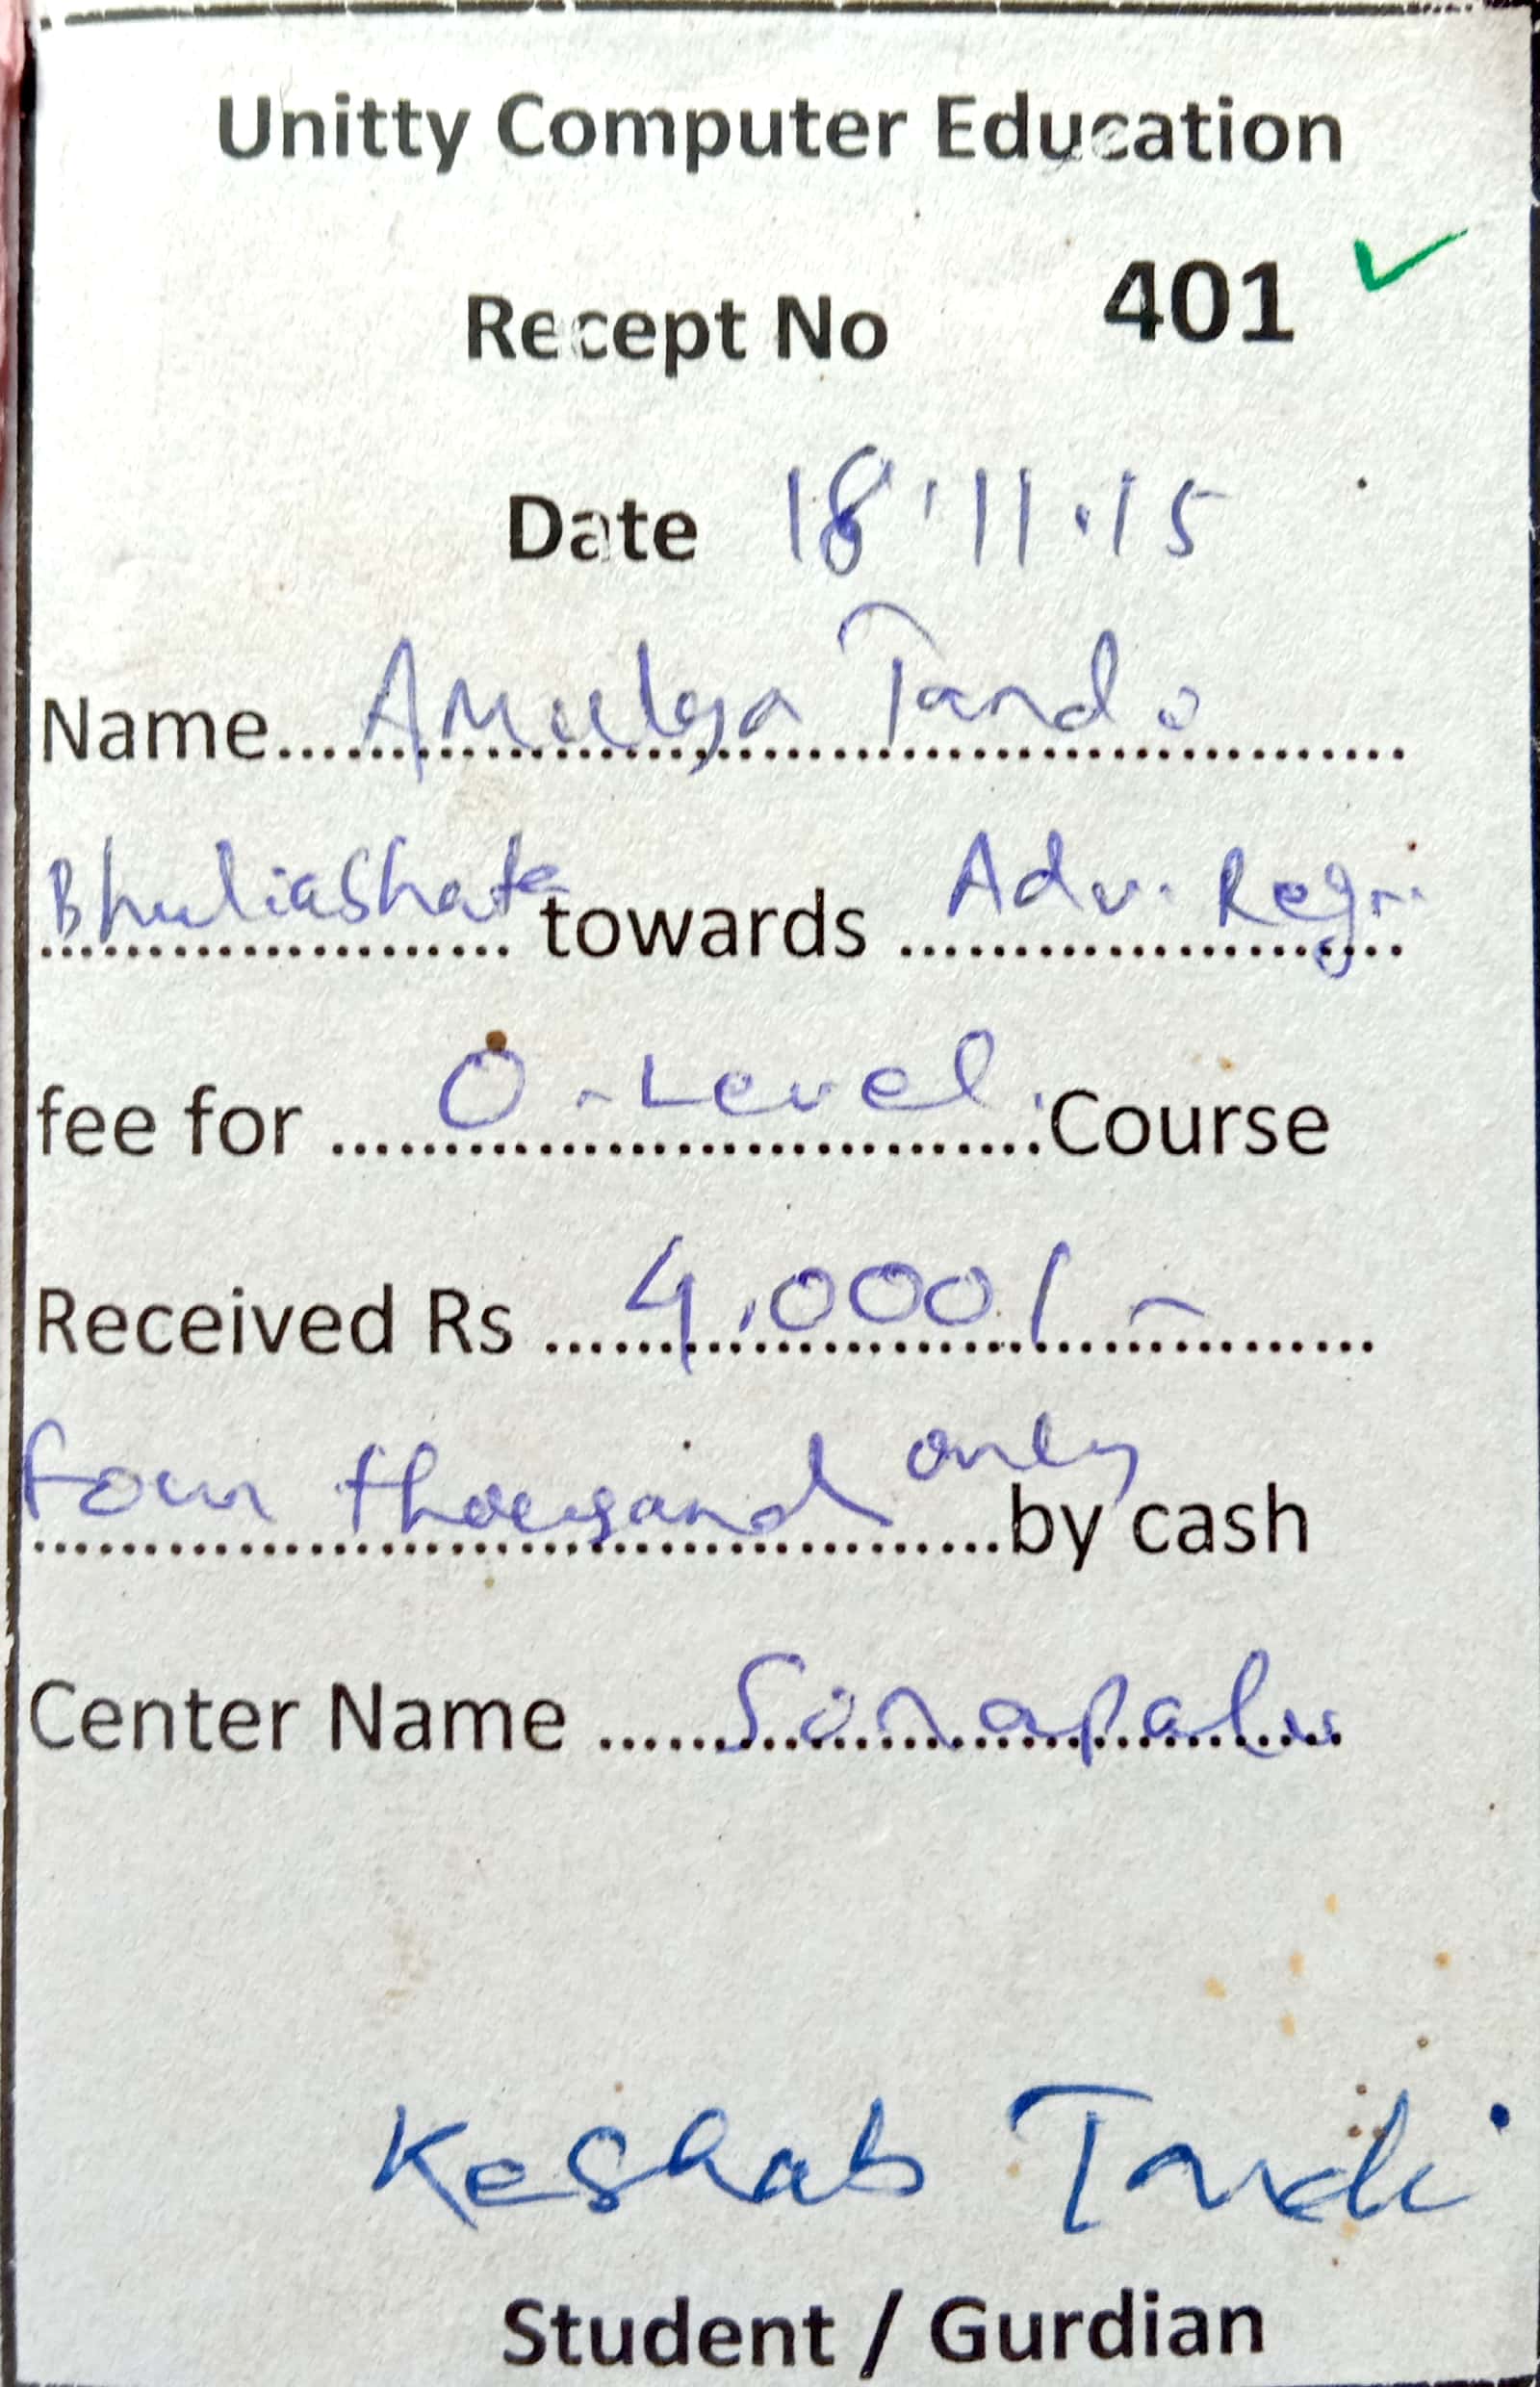 Unitty Computer Education
Recept No 401
Date 18.11.15
Name.... Amulya Tando
Bhuliashate towards Adv. Regr.
fee for .... O-Level .Course
Received Rs .... 4,000/-
four thousand only by cash
Center Name .... Sinapalu
Keshab Tandi
Student / Gurdian